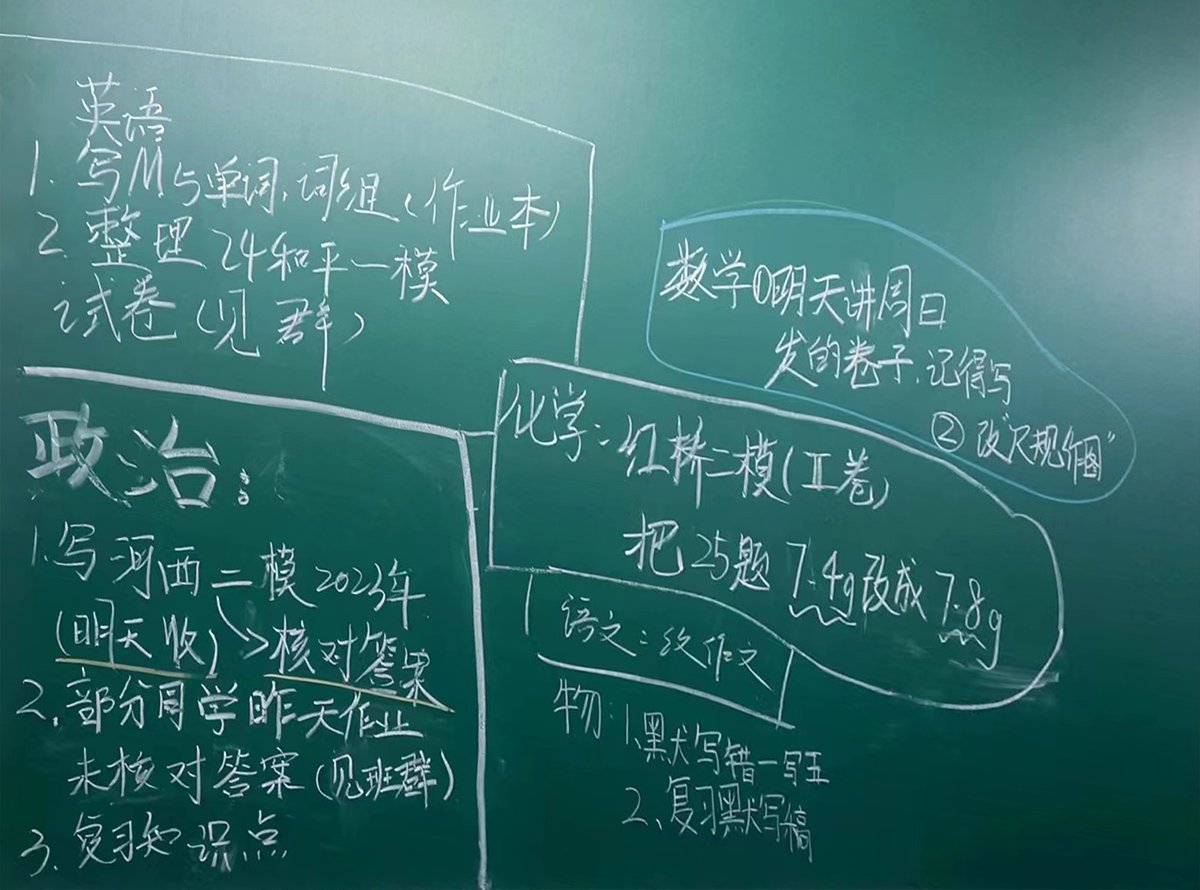 英语
1. 写M与单词、词组(作业本)
2. 整理24和平一模
试卷(见群)
数学①明天讲周日
发的卷子、记得写
② 改"尺规作图"
政治:
1.写河西二模2023年
(明天收) 核对答案
2.部分同学昨天作业
未核对答案(见班群)
3.复习知识点
化学:红桥二模(Ⅱ卷)
把25题 7.4g改成7.8g
语文:作文
物:1.默写错一写五
2、复习默写稿